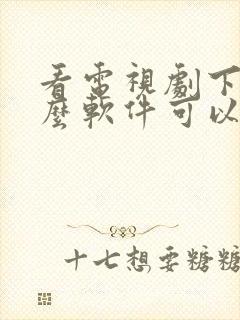 看電視劇下
麼軟件可以
十七想要糖糖